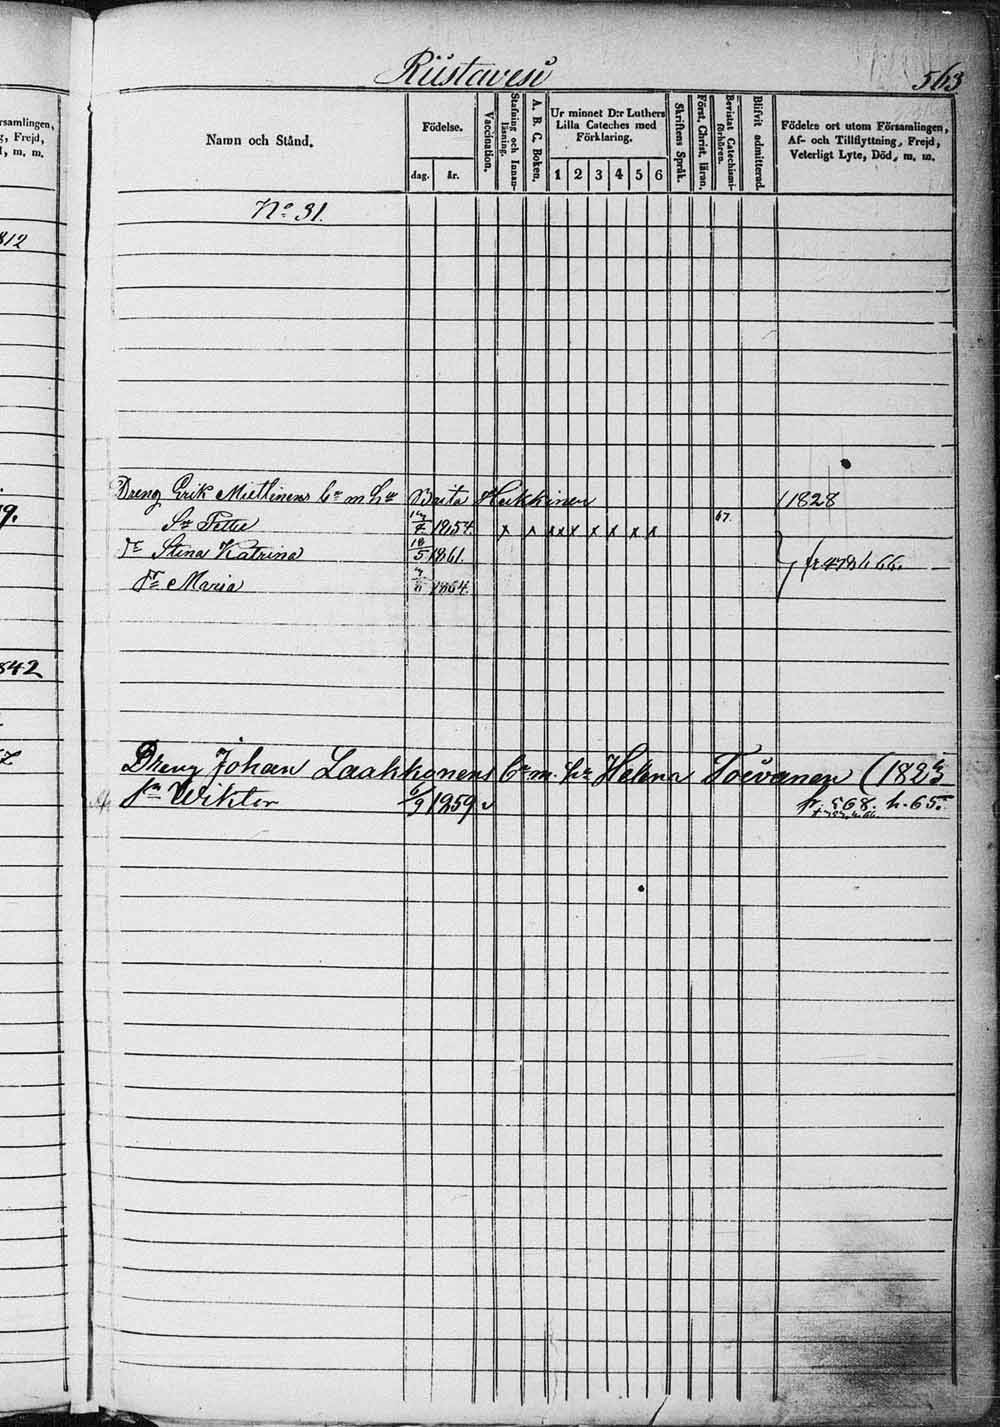 rsamlingen,
g, Frejd,
d, m. m.
812
9.
842
Riistavesi
563
Namn och Stånd.
Födelse.
dag.
år.
Vaccination.
Stafning och Innanläsning.
A. B. C. Boken.
Ur minnet D:r Luthers
Lilla Cateches med
Förklaring.
1 2 3 4 5 6
Skriftens Språk.
Först. Christ. läran.
Bevistat Catechismiförhören.
Blifvit admitterad.
Födelse ort utom Församlingen,
Af- och Tillflyttning, Frejd,
Veterligt Lyte, Död, m. m.
No 31.
Dreng Erik Miettinens m Brita Heikkinen (1828
Sn Petter 1854. x x x x x x x x x 67.
Dr Stina Katrina 18/5 1861. fr 478 h 66.
Dr Maria 1864.
Dreng Johan Laakkonens m. Helena Toivanen (1823
Sn Wiktor 6/9 1859 v fr. 568. h. 65.